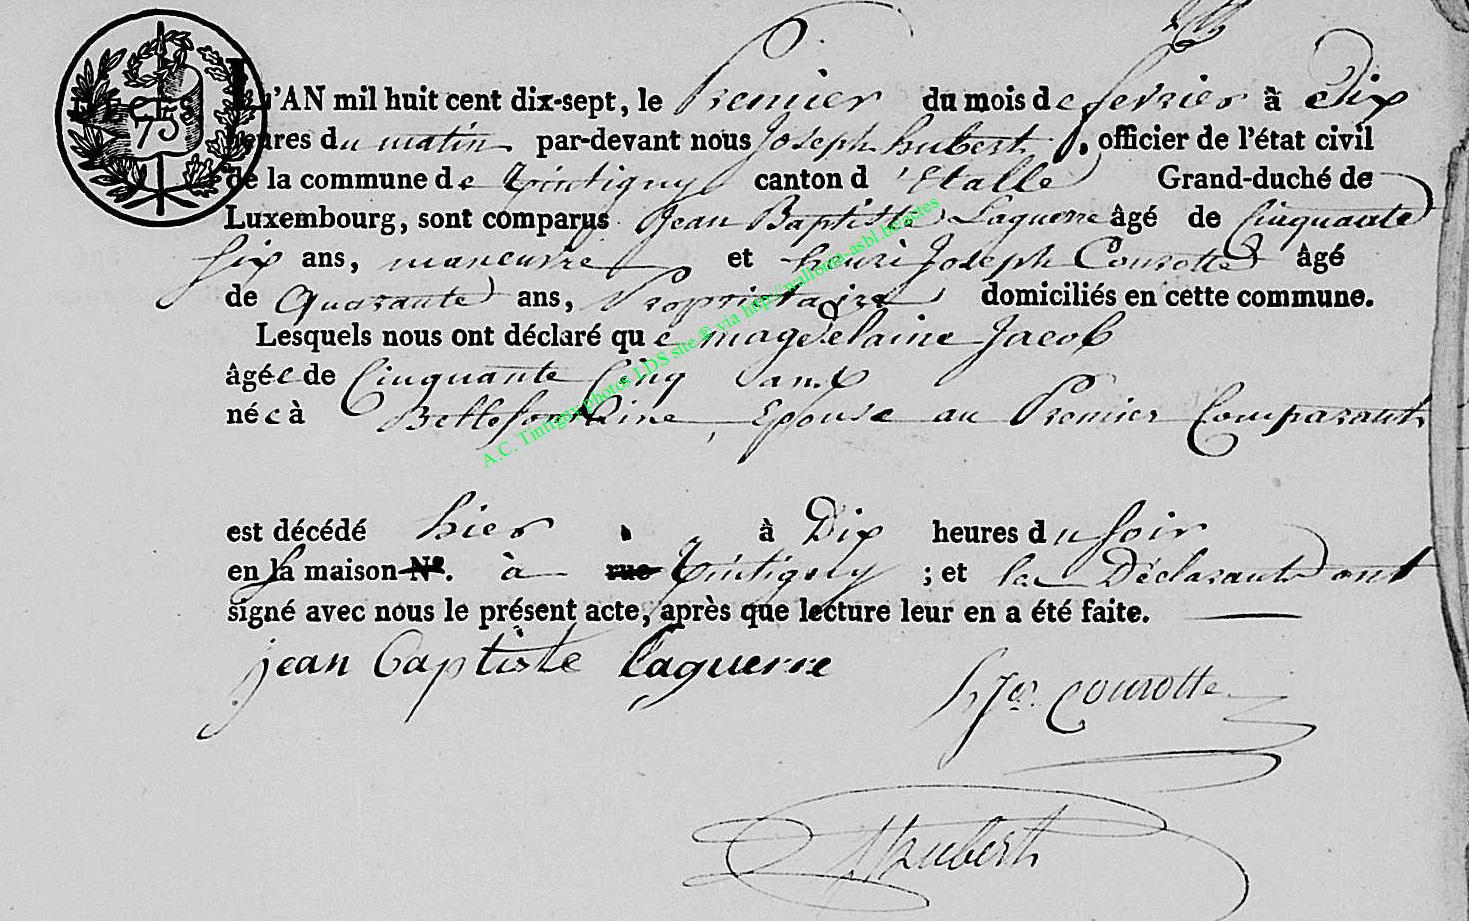 L'AN mil huit cent dix-sept, le Premier du mois de fevrier à Dix
heures du matin par-devant nous Joseph hubert, officier de l'état civil
de la commune de Tintigny canton d'Etalle Grand-duché de
Luxembourg, sont comparus Jean Baptiste Laguerre âgé de Cinquante
six ans, maneuvre et henri Joseph Courotte âgé
de Quarante ans, Propriétaire domiciliés en cette commune.
Lesquels nous ont déclaré que magdelaine Jacob
âgée de Cinquante Cinq ans
née à Bellefontaine, Epouse au Premier Comparant
est décédé hier à Dix heures du soir
en sa maison Nº. à rue Tintigny ; et les Déclarants ont
signé avec nous le présent acte, après que lecture leur en a été faite.
jean baptiste laguerre
h Jos courotte
JHubert
DECES
75
A.C. Tintigny photos LDS site ® via http://wallonia-asbl.be/actes